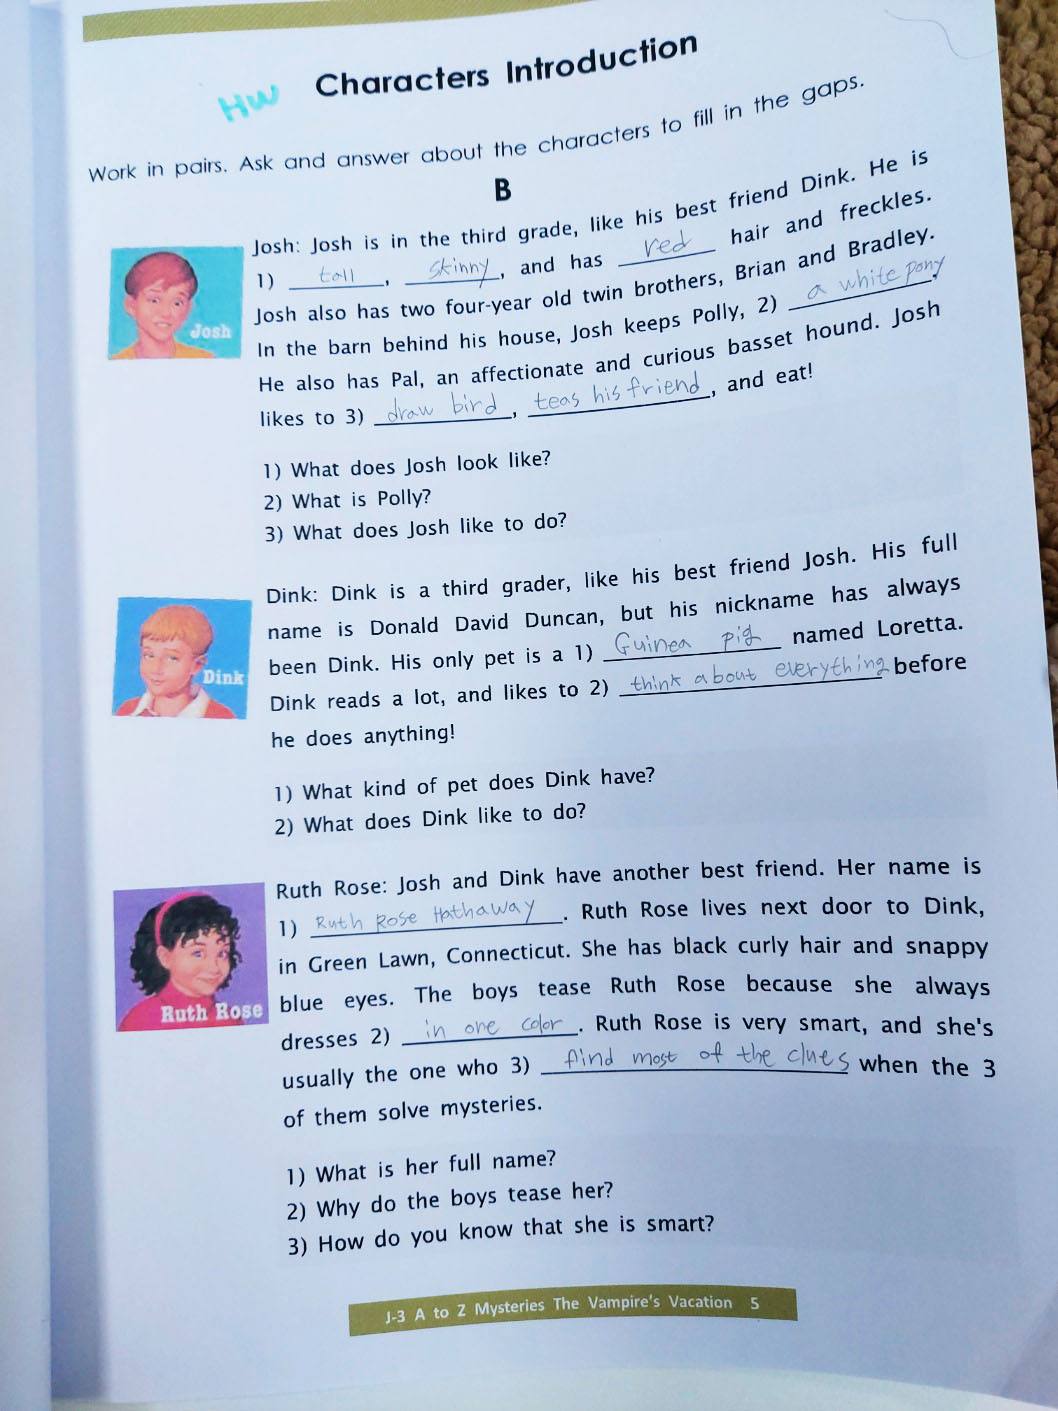 HW
Characters Introduction
Work in pairs. Ask and answer about the characters to fill in the gaps.
B
Josh: Josh is in the third grade, like his best friend Dink. He is
1) tall, skinny, and has red hair and freckles.
Josh also has two four-year old twin brothers, Brian and Bradley.
In the barn behind his house, Josh keeps Polly, 2) a white pony.
He also has Pal, an affectionate and curious basset hound. Josh
likes to 3) draw bird, teas his friend, and eat!
Josh
1) What does Josh look like?
2) What is Polly?
3) What does Josh like to do?
Dink: Dink is a third grader, like his best friend Josh. His full
name is Donald David Duncan, but his nickname has always
been Dink. His only pet is a 1) Guinea pig named Loretta.
Dink reads a lot, and likes to 2) think about everything before
he does anything!
Dink
1) What kind of pet does Dink have?
2) What does Dink like to do?
Ruth Rose: Josh and Dink have another best friend. Her name is
1) Ruth Rose Hathaway. Ruth Rose lives next door to Dink,
in Green Lawn, Connecticut. She has black curly hair and snappy
blue eyes. The boys tease Ruth Rose because she always
dresses 2) in one color. Ruth Rose is very smart, and she's
usually the one who 3) find most of the clues when the 3
of them solve mysteries.
Ruth Rose
1) What is her full name?
2) Why do the boys tease her?
3) How do you know that she is smart?
J-3 A to Z Mysteries The Vampire's Vacation 5